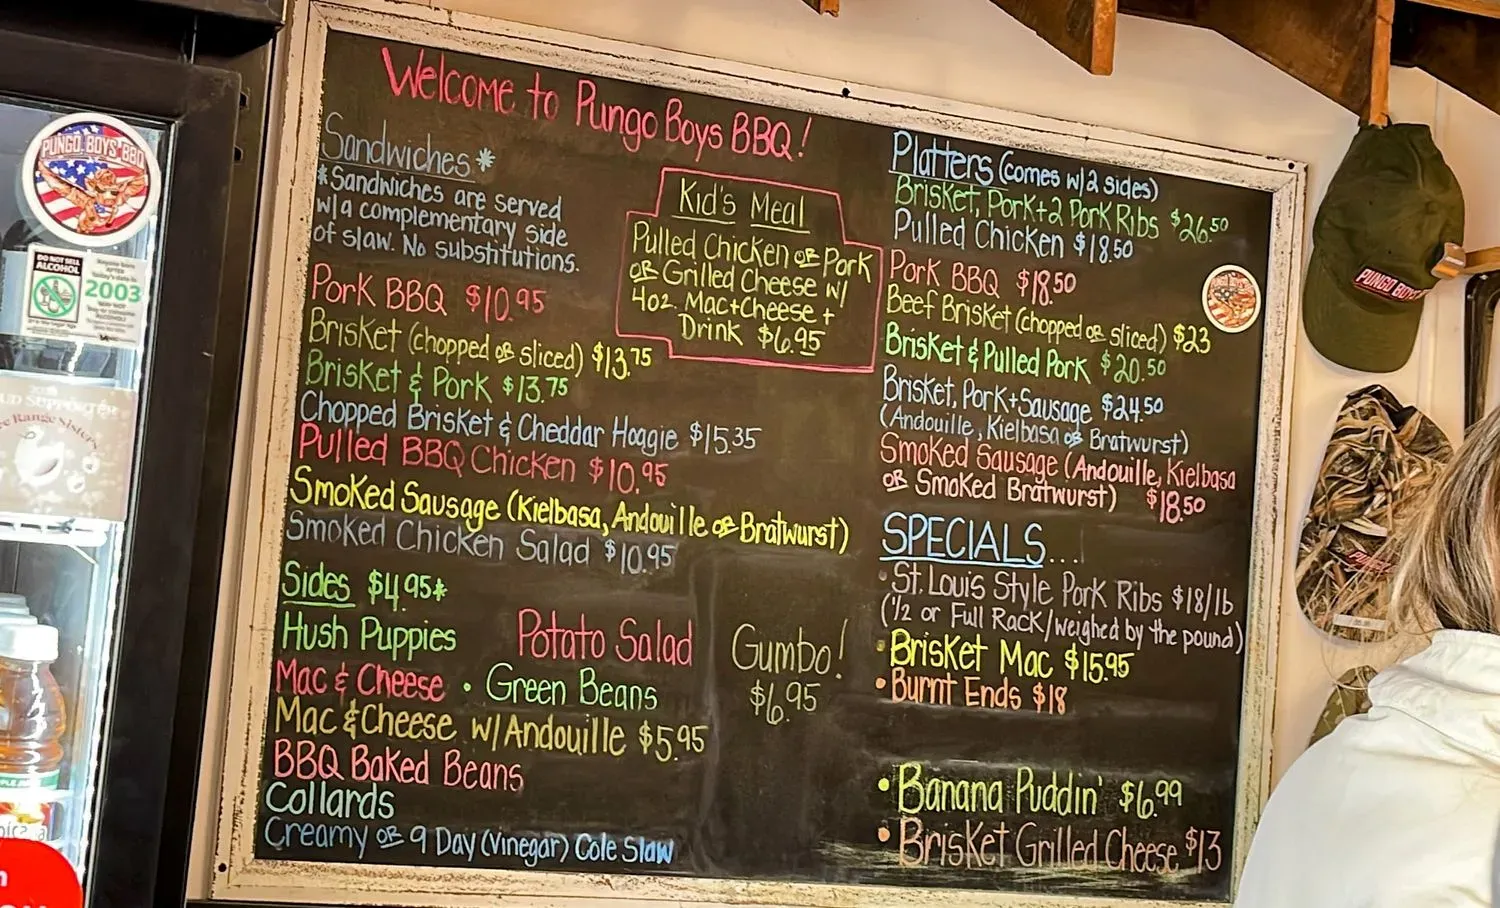 Welcome to Pungo Boys BBQ!
Sandwiches*
*Sandwiches are served
w/a complementary side
of slaw. No substitutions.
Pork BBQ $10.95
Brisket (chopped or sliced) $13.75
Brisket & Pork $13.75
Chopped Brisket & Cheddar Hoagie $15.35
Pulled BBQ Chicken $10.95
Smoked Sausage (Kielbasa, Andouille or Bratwurst)
Smoked Chicken Salad $10.95
Sides $4.95*
Hush Puppies
Potato Salad
Mac & Cheese • Green Beans
Mac & Cheese w/Andouille $5.95
BBQ Baked Beans
Collards
Creamy or 9 Day (Vinegar) Cole Slaw
Kid's Meal
Pulled Chicken or Pork
or Grilled Cheese w/
4oz. Mac+Cheese +
Drink $6.95
Gumbo!
$6.95
Platters (comes w/2 sides)
Brisket, Pork+2 Pork Ribs $26.50
Pulled Chicken $18.50
Pork BBQ $18.50
Beef Brisket (chopped or sliced) $23
Brisket & Pulled Pork $20.50
Brisket, Pork+Sausage $24.50
(Andouille, Kielbasa or Bratwurst)
Smoked Sausage (Andouille, Kielbasa
or Smoked Bratwurst) $18.50
SPECIALS...
• St. Louis Style Pork Ribs $18/lb
(1/2 or Full Rack/weighed by the pound)
• Brisket Mac $15.95
• Burnt Ends $18
• Banana Puddin' $6.99
• Brisket Grilled Cheese $13
PUNGO BOYS BBQ
DO NOT SELL
ALCOHOL
2003
Range Sisters
PUNGO BOYS